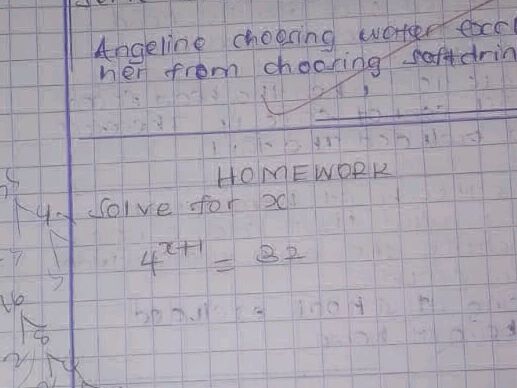 Angeline choosing water
her from choosing softdrin
HOMEWORK
4. Solve for x
4^{x+1} = 32